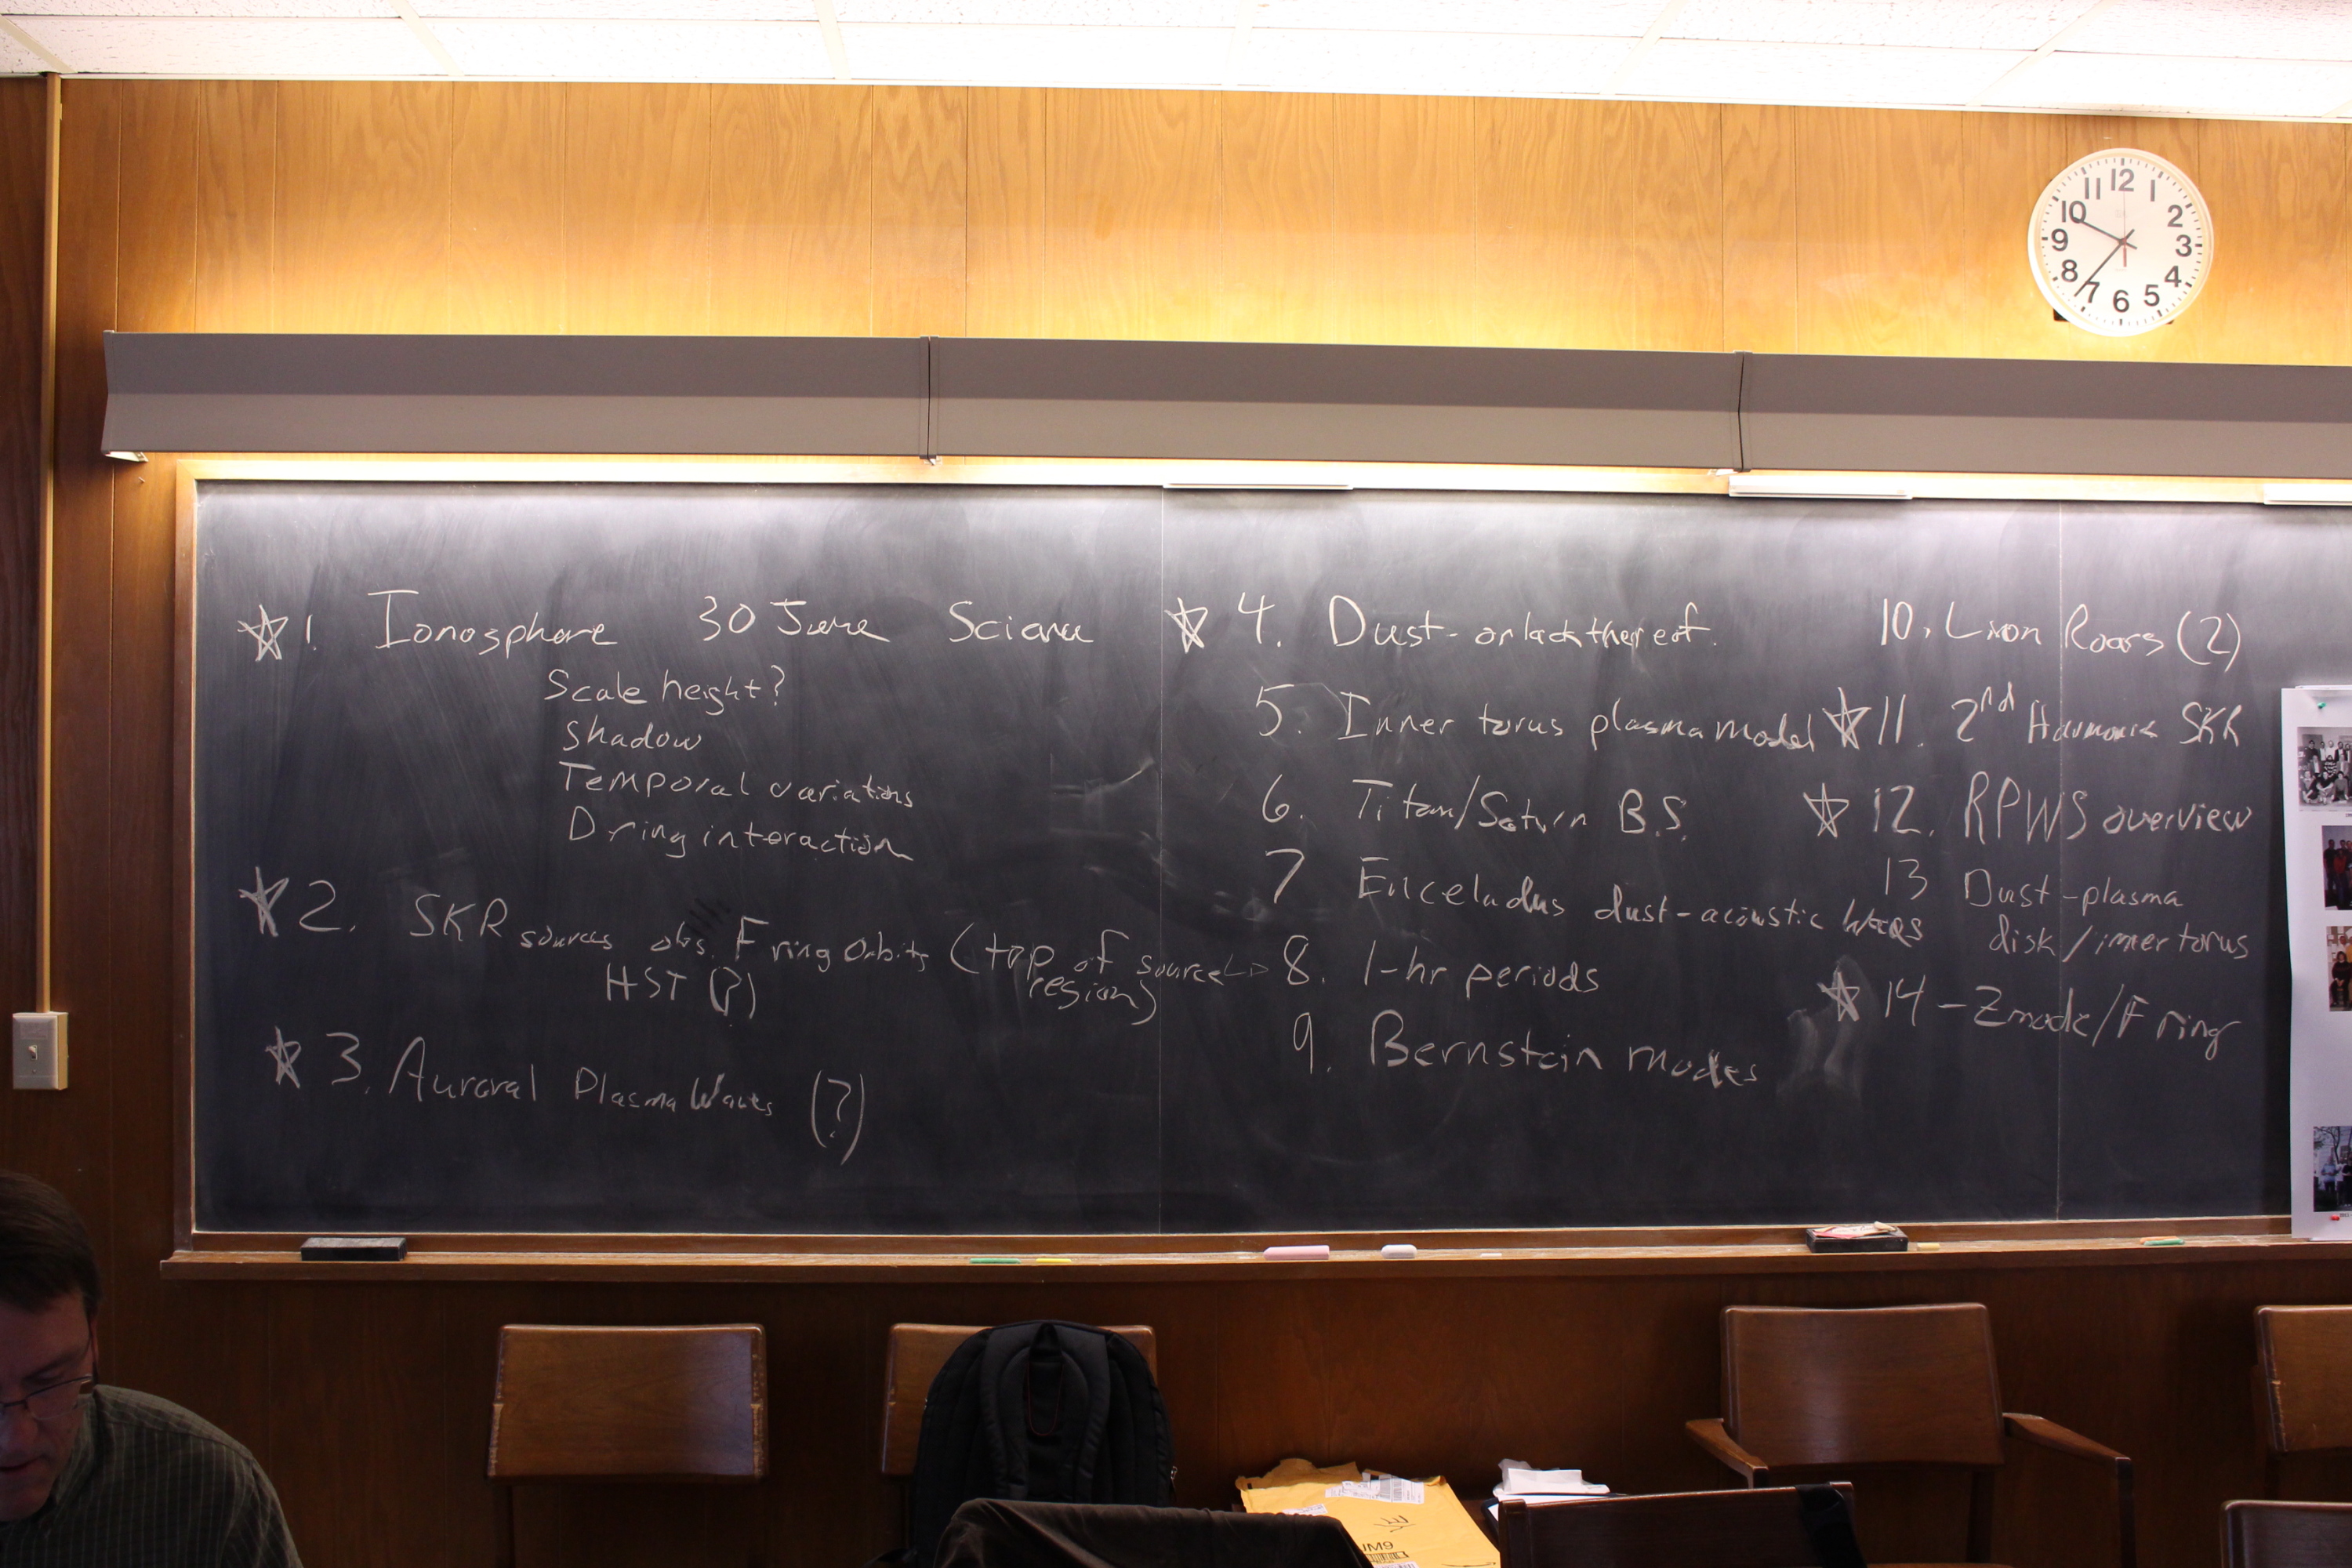 ☆ 1 Ionosphere 30 June Science
Scale height?
Shadow
Temporal variations
D ring interaction
☆ 2. SKR sources obs. F ring Orbits (top of source
region)
HST (?)
☆ 3. Auroral Plasma Waves (?)
☆ 4. Dust - or lack thereof.
5. Inner torus plasma model
6. Titan/Saturn B.S.
7 Enceladus dust-acoustic
8. 1-hr periods
9. Bernstein modes
10. Lion Roars (2)
☆ 11. 2nd Harmonic SKR
☆ 12. RPWS overview
13 Dust-plasma
disk/inner torus
☆ 14 - Z mode/F ring
12
1
2
3
4
5
6
7
8
9
10
11
JM9